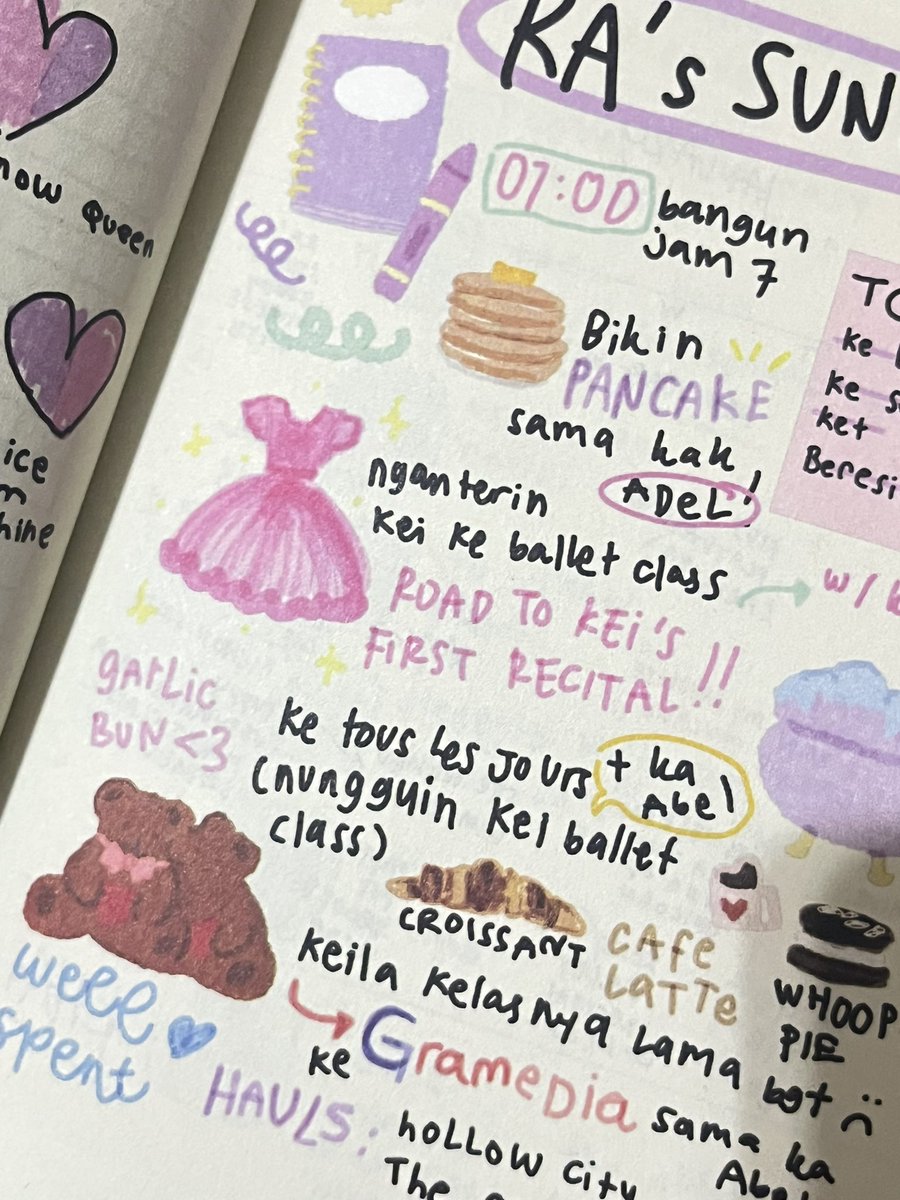 KA's SUN
07:00
bangun
jam 7
Bikin
PANCAKE
sama kak
ADEL
nganterin
Kei ke ballet class
w/
ROAD TO KEi's
FIRST RECITAL!!
garLic
BUN <3
Ke tous Les Jours
+ ka
Abel
(nungguin Kei ballet
class)
CROISSANT
CAFE
LATTE
WHOOP
PIE
Keila Kelasnya Lama bgt :(
ke Gramedia sama ka
weee
spent
HAULS:
hoLLow city
The
ke
ke s
ket
Beresi
now Queen
ice
hine